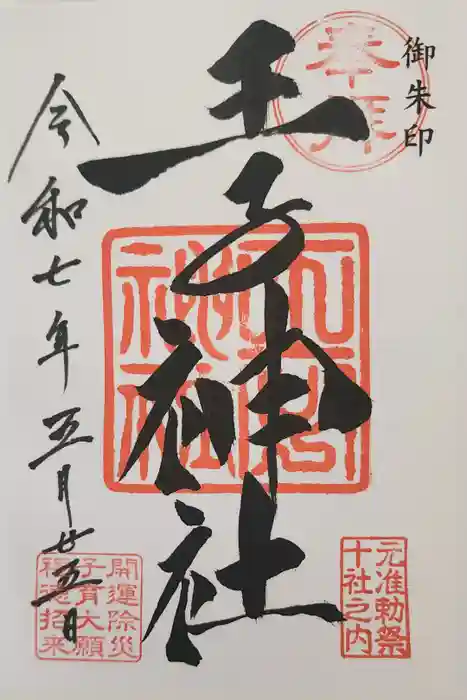 御朱印
奉拝
王子神社
元准勅祭
十社之内
令和七年五月廿五日
開運除災
子育大願